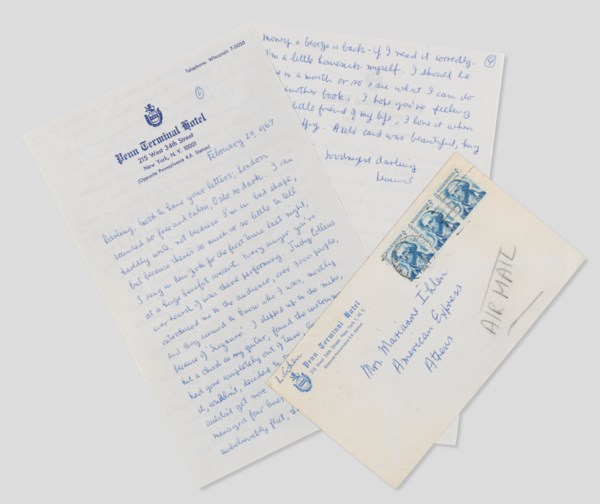 Telephone: Wisconsin 7-5050
①
Penn Terminal Hotel
215 West 34th Street
New York, N.Y. 10001
(Opposite Pennsylvania R.R. Station)
February 23, 1967
Darling, Good to have your letters; London
sounded so free and calm, Oslo so dark. I can
hardly write, not because I'm in bad shape,
but because there's so much or so little to tell
I sang in New York for the first time last night,
at a huge benefit concert. Every singer you've
ever heard of was there performing. Judy Collins
introduced me to the audience, over 3000 people,
and they seemed to know who I was, mostly
because of Suzanne. I stepped up to the mike,
hit a chord on my guitar, found the instrument
had gone completely out of tune,
it, couldn't, decided to
couldn't get more
managed four lines
unbelievably flat,
money & George is back - if I need it correctly.
④
I'm a little homesick myself. I should be
in a month or so & see what I can do
another book. I hope you're feeling
little friend of my life, I love it when
Axel's card was beautiful, hug
Goodnight darling
Leonard
L. Cohen
Penn Terminal Hotel
215 West 34th Street, New York 1, N.Y.
(Opposite Pennsylvania R.R. Station)
Mrs. Marianne Ihlen
American Express
Athens
AIR MAIL